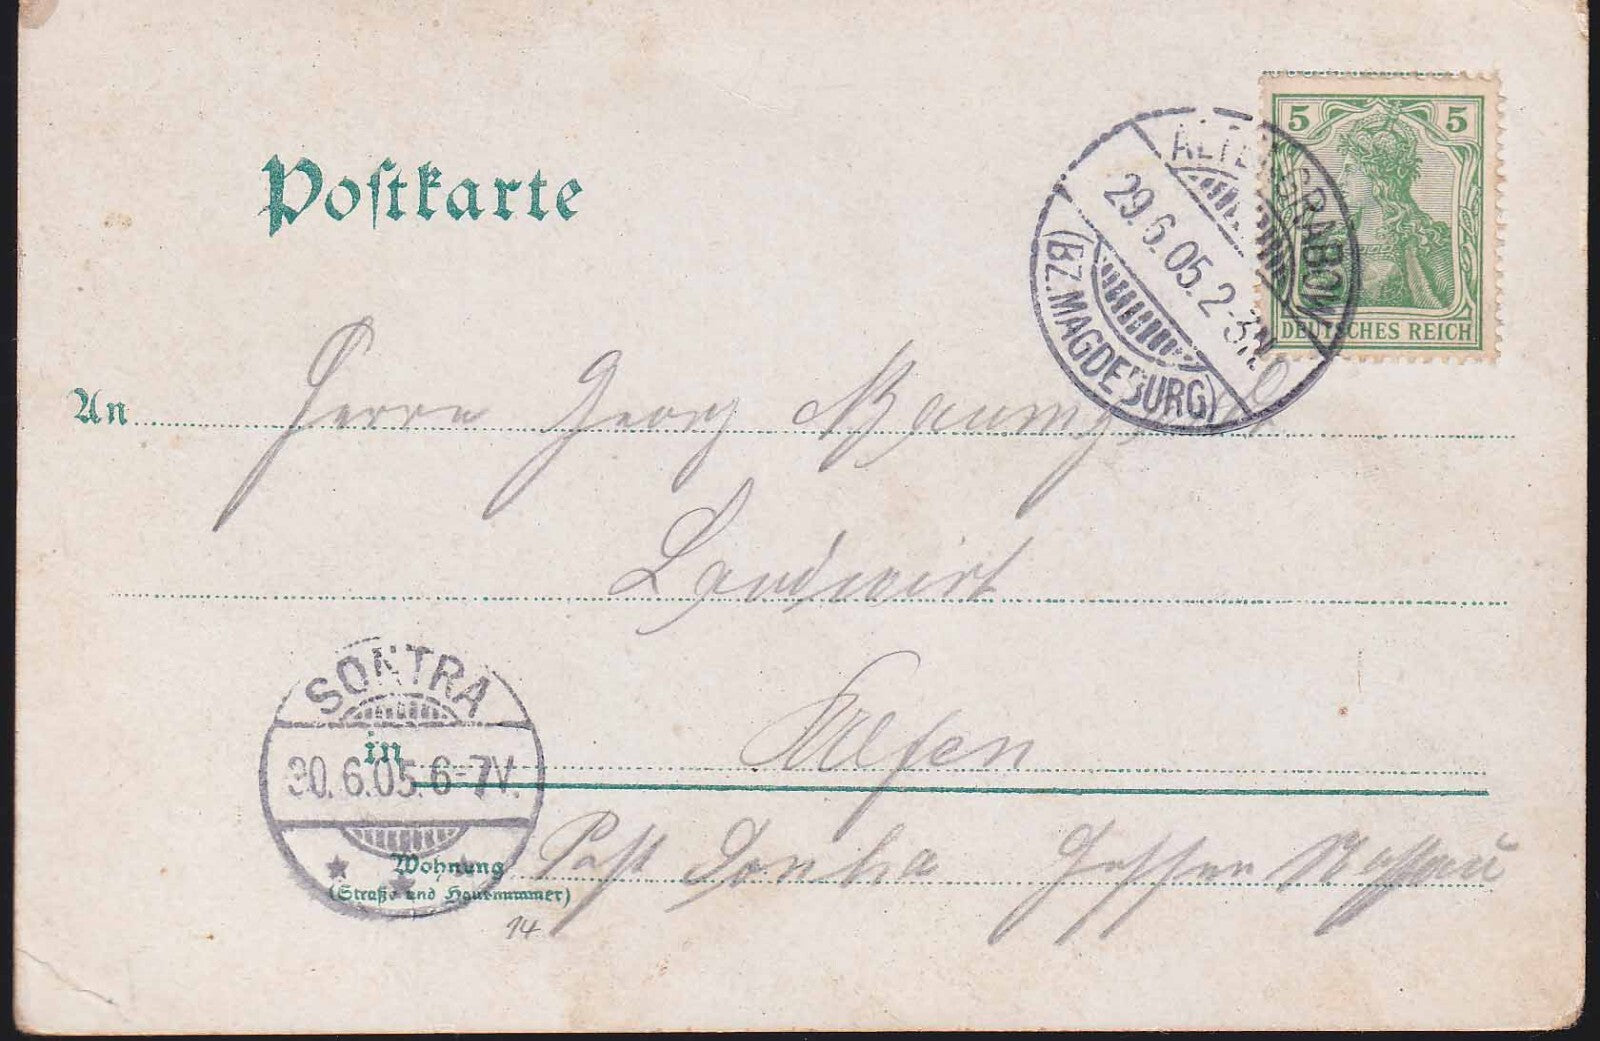 Postkarte
5 5
DEUTSCHES REICH
ALTENGRABOW
29.6.05.2-3N.
(BZ.MAGDEBURG)
An Herrn Georg
Landwirt
SONTRA
30.6.05.6-7V.
in Ulfen
Wohnung Post Sontra Hessen Nassau
(Straße und Hausnummer)
14